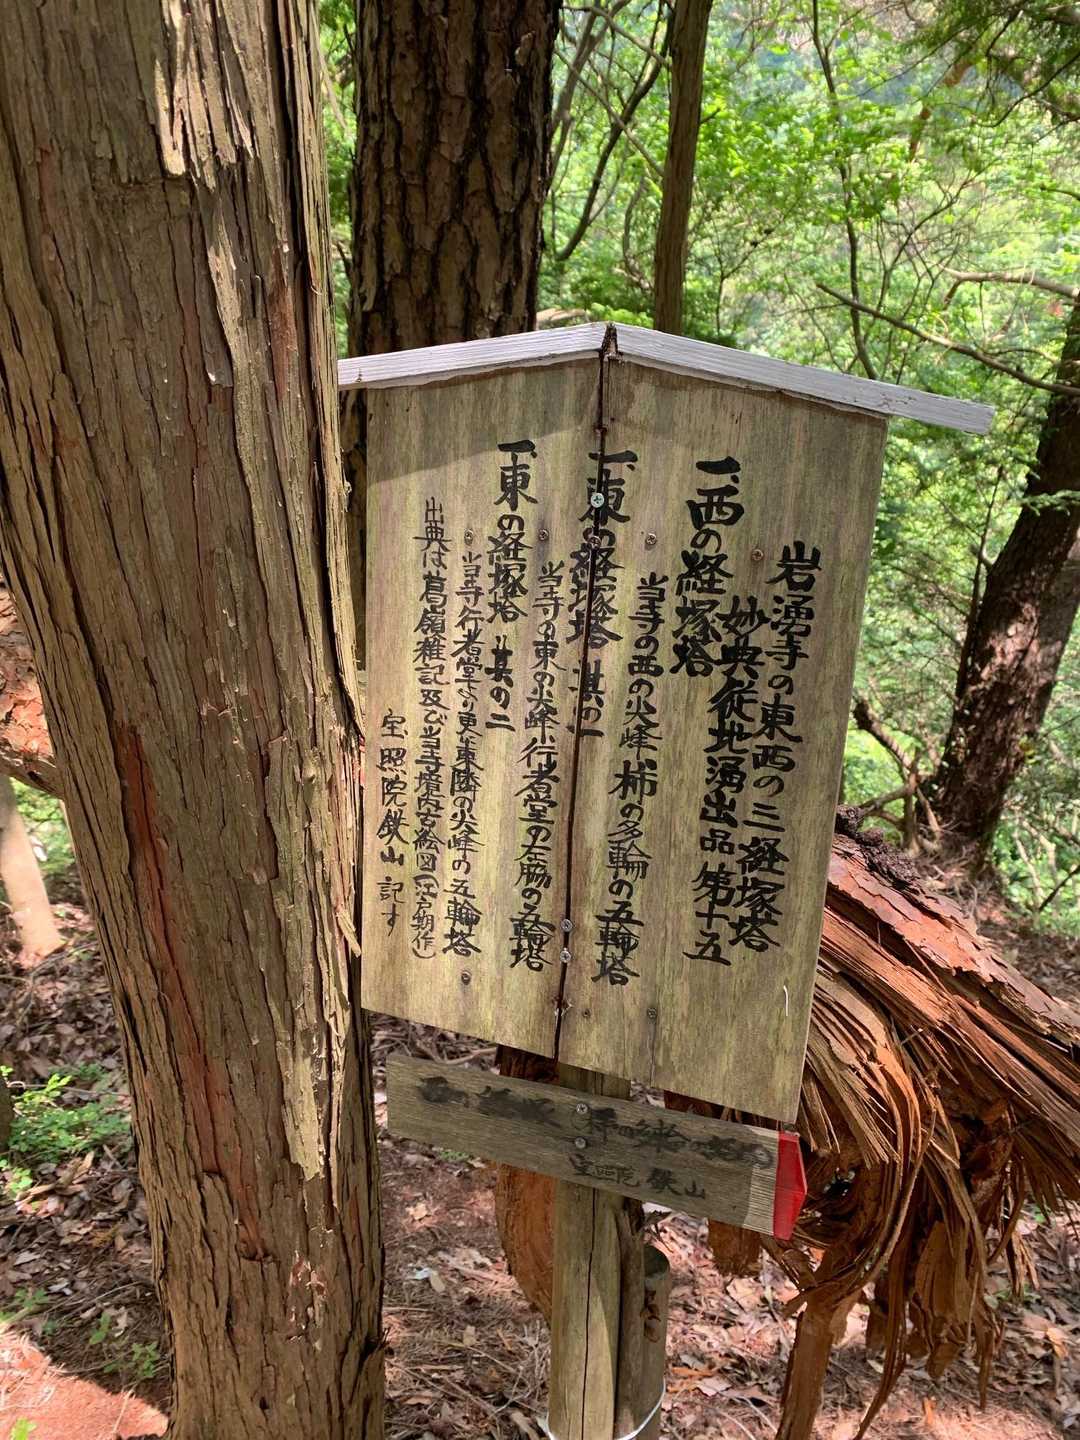 岩湧寺の東西の三経塚塔
妙典従地湧出品第十五
一、西の経塚塔
当寺の西の尖峰、柿の多輪の五輪塔
一、東の経塚塔 其の一
当寺の東の尖峰、行者堂の左脇の五輪塔
一、東の経塚塔 其の二
当寺行者堂より更に東隣の尖峰の五輪塔
出典は葛嶺雑記及び当寺境内古絵図(江戸期作)
宝照院鉄山 記す
宝照院 鉄山